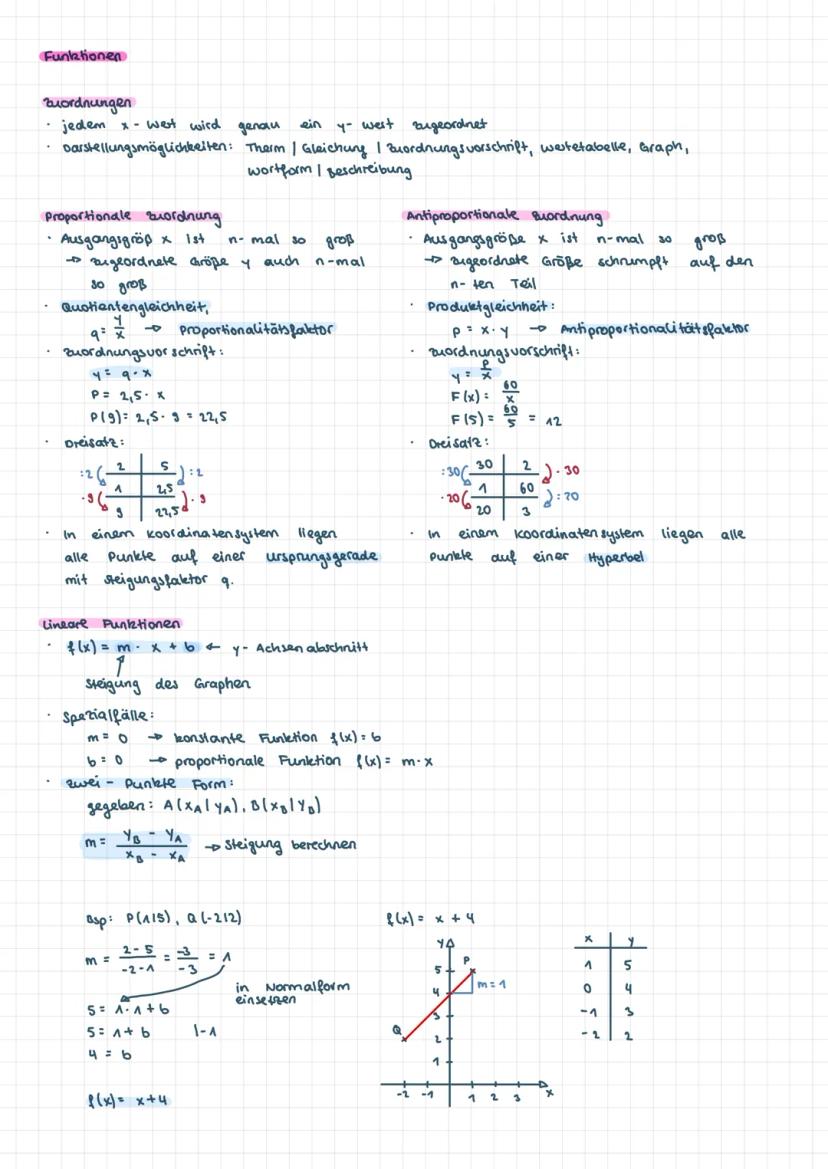 Funktionen
Zuordnungen
· jedem x-Wert wird genau ein y-Wert zugeordnet
· Darstellungsmöglichkeiten: Therm | Gleichung | Zuordnungsvorschrift, Wertetabelle, Graph,
Wortform | Beschreibung
Proportionale Zuordnung
· Ausgangsgröß x ist n-mal so groß
→ zugeordnete Größe y auch n-mal
so groß
· Quotientengleichheit,
q = y/x → Proportionalitätsfaktor
· Zuordnungsvorschrift:
y = q · x
P = 2,5 · x
P(9) = 2,5 · 9 = 22,5
· Dreisatz:
:2 2 | 5 :2
·9 1 | 2,5 ·9
9 | 22,5
· In einem Koordinatensystem liegen
alle Punkte auf einer Ursprungsgerade
mit Steigungsfaktor q.
Antiproportionale Zuordnung
· Ausgangsgröße x ist n-mal so groß
→ zugeordnete Größe schrumpft auf den
n-ten Teil
· Produktgleichheit:
p = x · y → Antiproportionalitätsfaktor
· Zuordnungsvorschrift:
y = p/x
F(x) = 60/x
F(5) = 60/5 = 12
· Dreisatz:
:30 30 | 2 ·30
·20 1 | 60 :20
20 | 3
· In einem Koordinatensystem liegen alle
Punkte auf einer Hyperbel
Lineare Funktionen
· f(x) = m · x + b ← y-Achsenabschnitt
Steigung des Graphen
· Spezialfälle:
m = 0 → konstante Funktion f(x) = b
b = 0 → proportionale Funktion f(x) = m·x
· Zwei-Punkte Form:
gegeben: A(xA|yA), B(xB|yB)
m = (yB - yA)/(xB - xA) → Steigung berechnen
Bsp: P(1|5), Q(-2|2)
m = (2-5)/(-2-1) = -3/-3 = 1
in Normalform
einsetzen
5 = 1·1+b
5 = 1+b |-1
4 = b
f(x) = x+4
f(x) = x + 4
y
P
5
m = 1
4
3
Q
2
1
-2 -1 1 2 3 x
x | y
1 | 5
0 | 4
-1 | 3
-2 | 2